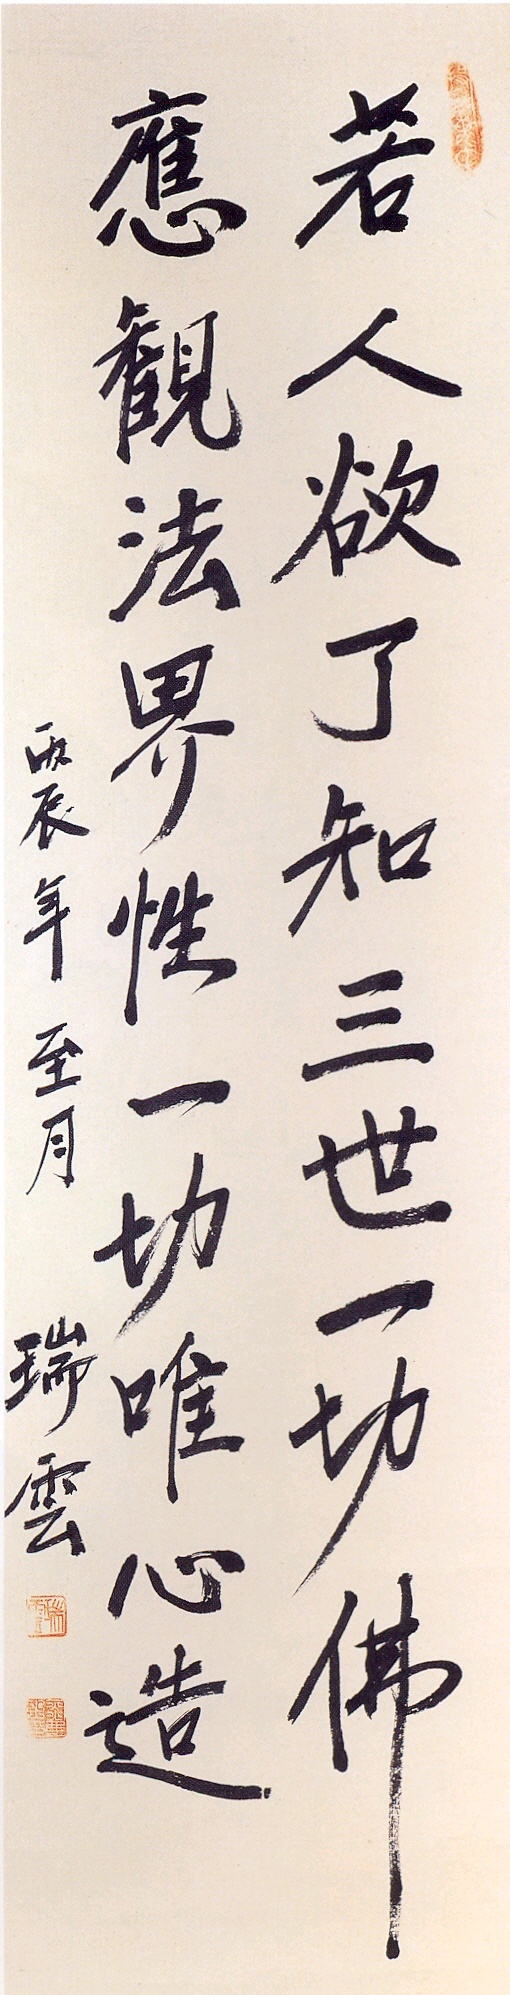 若人欲了知三世一切佛
應観法界性一切唯心造
丙辰年至月 瑞雲